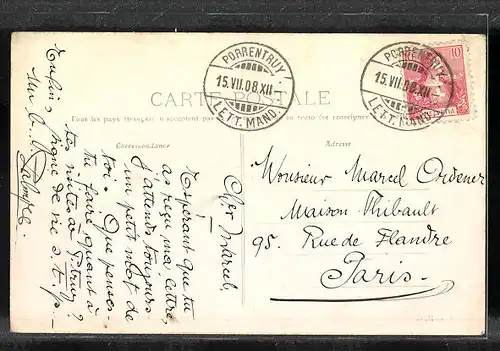 PORRENTRUY
15.VII.08.XII
LETT. MAND.
PORRENTRUY
15.VII.08.XII
LETT. MAND.
10
CARTE POSTALE
Tous les pays étrangers n'acceptent pas
se renseigner
Correspondance
Adresse
Cher Marcel,
Espérant que tu
as reçu ma lettre,
J'attends toujours
un petit mot de
toi. Que penses-
tu faire quant à
ta
?
Enfin,
signe de vie s. t. p.
Monsieur Marcel Ordener
Maison Thibault
95. Rue de Flandre
Paris.